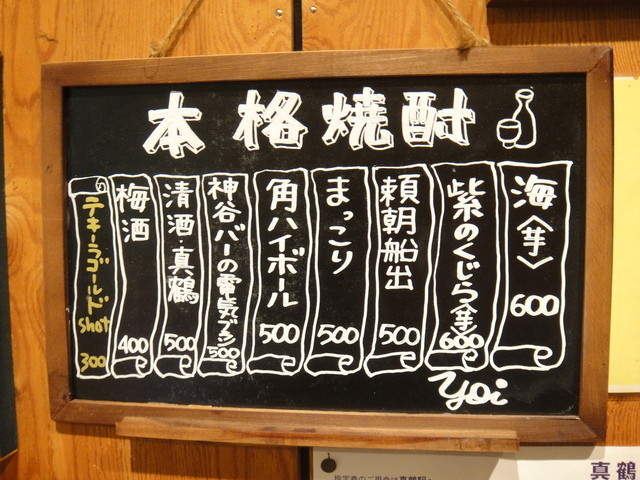 本格焼酎
海〈芋〉
600
紫のくじら〈芋〉
600
頼朝船出
500
まっこり
500
角ハイボール
500
神谷バーの電気ブラン
500
清酒・真鶴
500
梅酒
400
テキーラゴールド
shot
300
yoi
真鶴